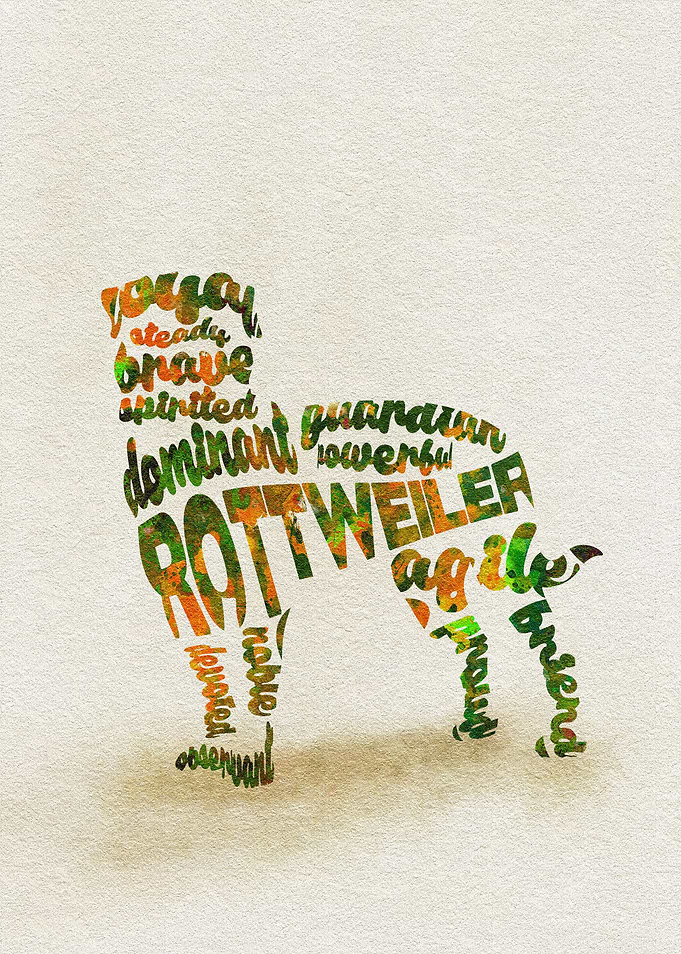 loyal
steady
brave
spirited
dominant
guardian
powerful
ROTTWEILER
agile
devoted
noble
observant